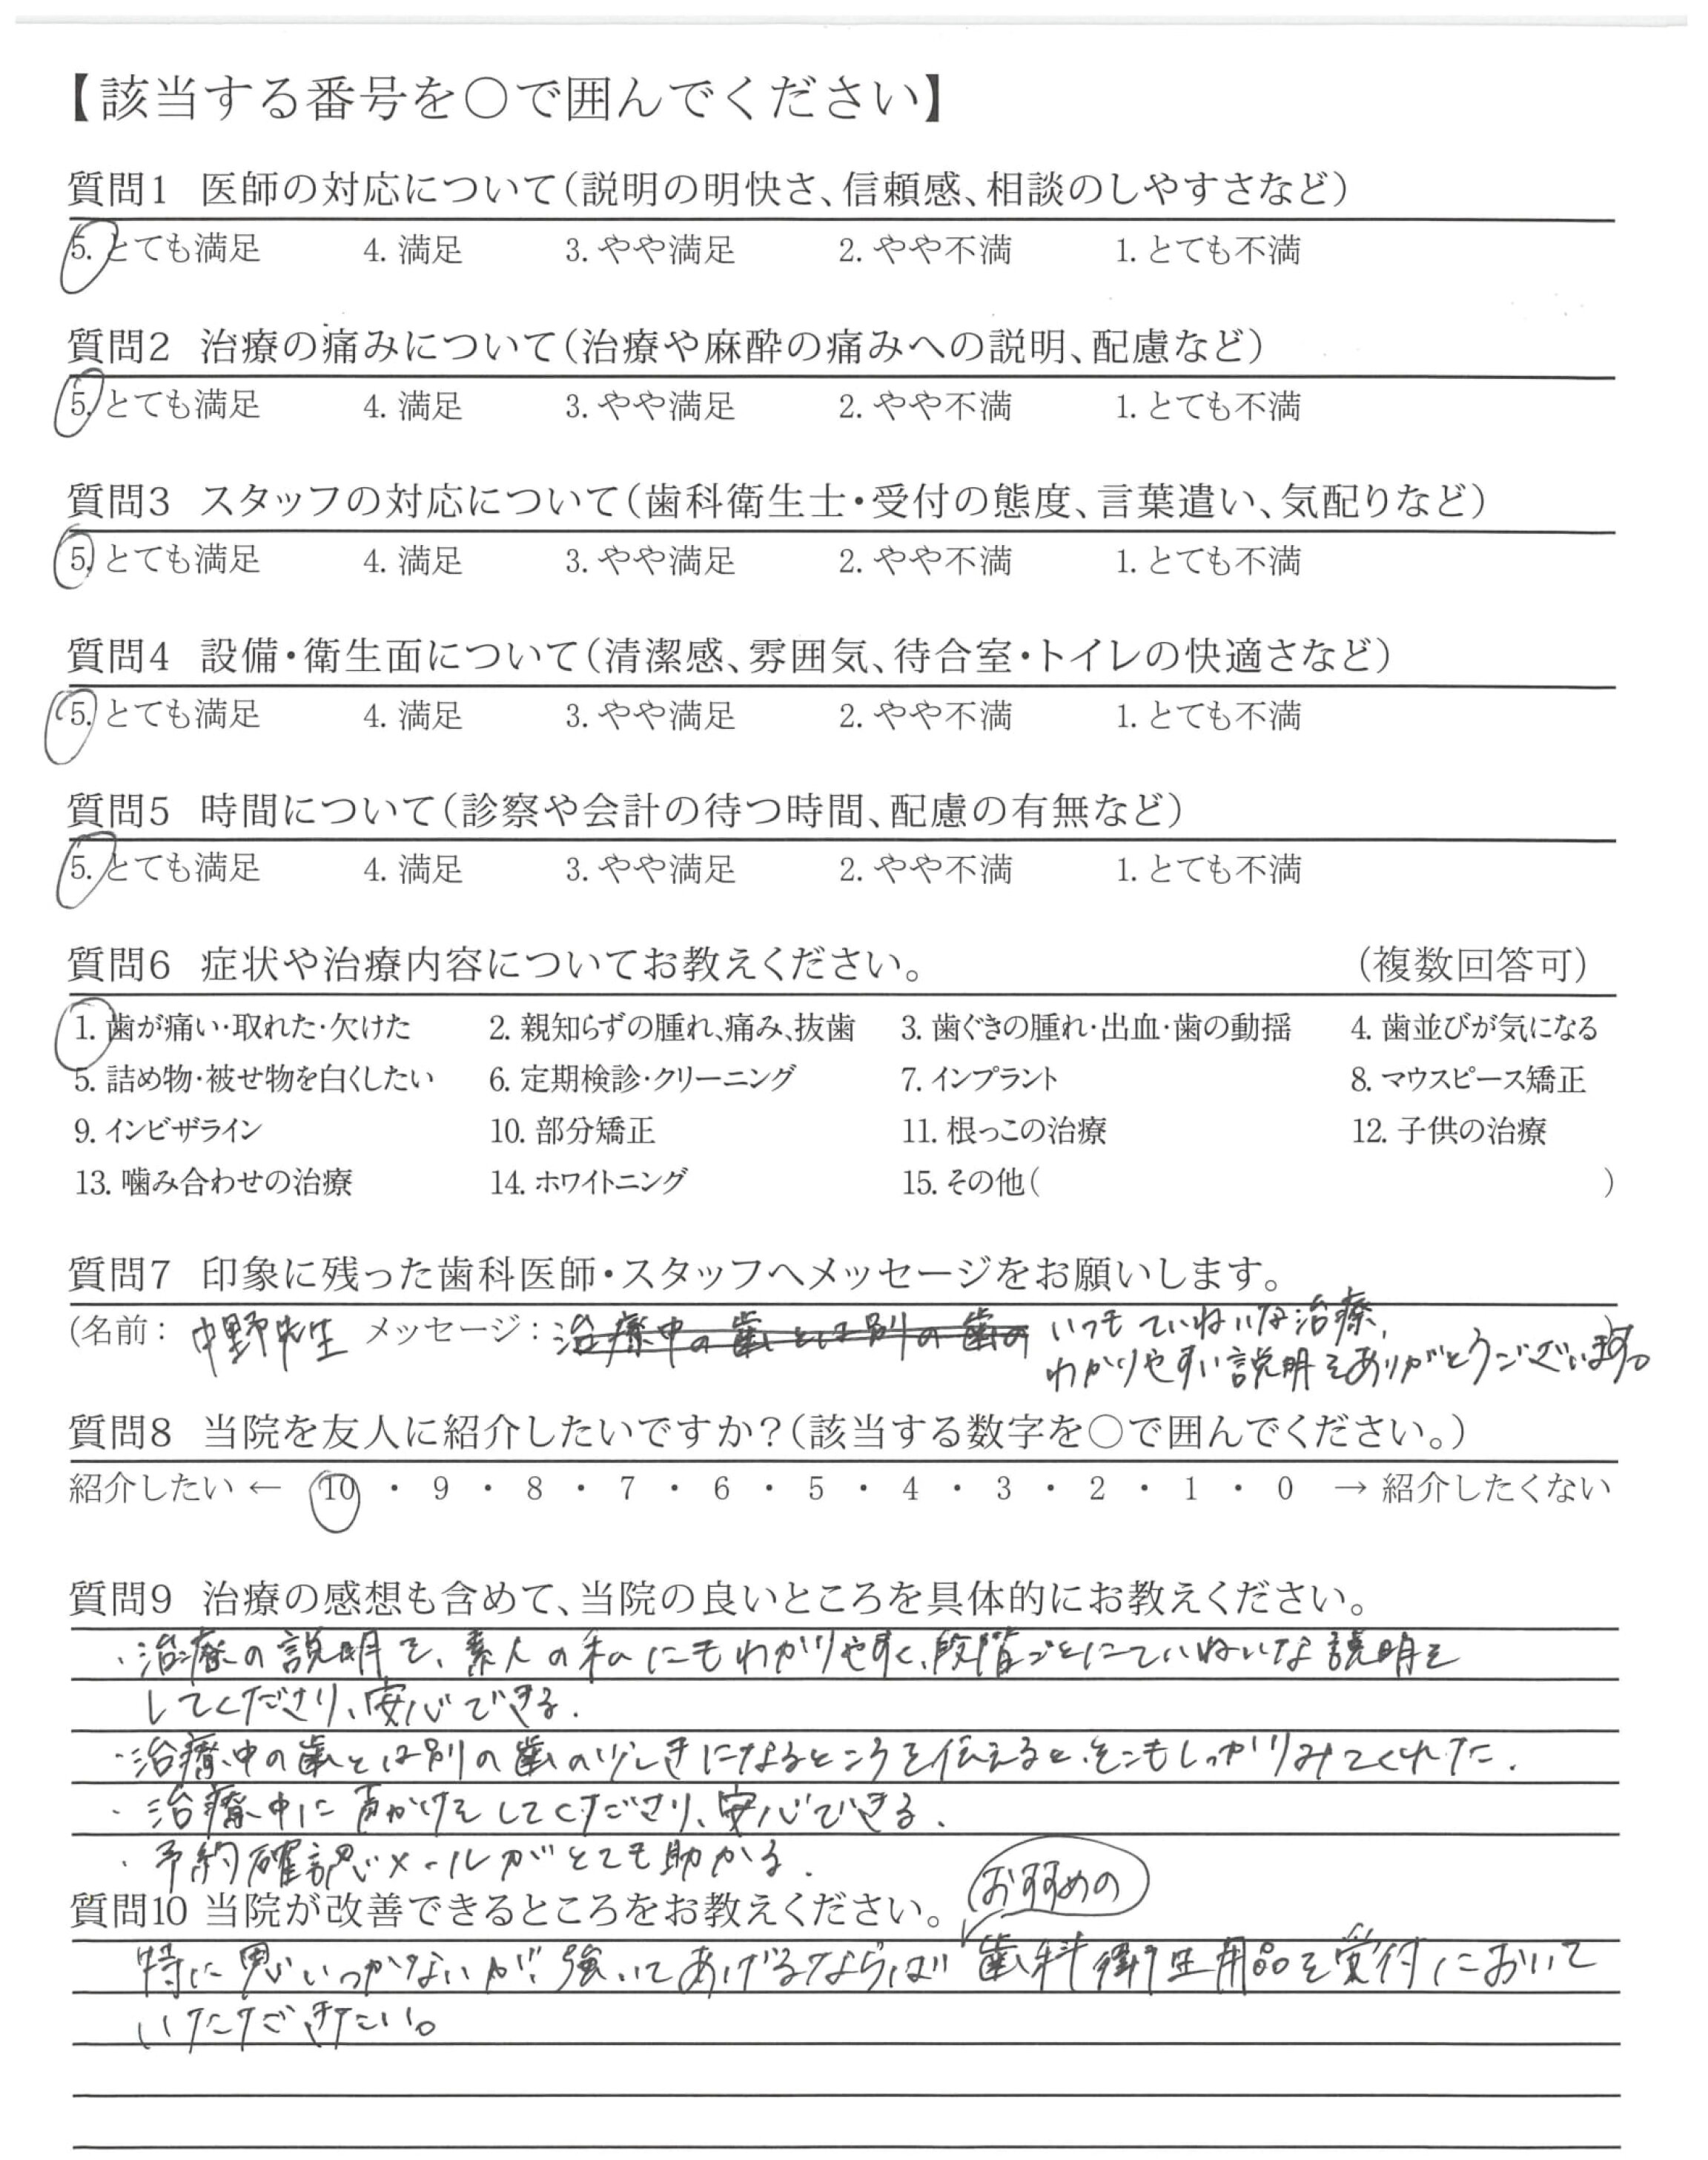 【該当する番号を○で囲んでください】
質問1 医師の対応について(説明の明快さ、信頼感、相談のしやすさなど)
5. とても満足 4. 満足 3. やや満足 2. やや不満 1. とても不満
質問2 治療の痛みについて(治療や麻酔の痛みへの説明、配慮など)
5. とても満足 4. 満足 3. やや満足 2. やや不満 1. とても不満
質問3 スタッフの対応について(歯科衛生士・受付の態度、言葉遣い、気配りなど)
5. とても満足 4. 満足 3. やや満足 2. やや不満 1. とても不満
質問4 設備・衛生面について(清潔感、雰囲気、待合室・トイレの快適さなど)
5. とても満足 4. 満足 3. やや満足 2. やや不満 1. とても不満
質問5 時間について(診察や会計の待つ時間、配慮の有無など)
5. とても満足 4. 満足 3. やや満足 2. やや不満 1. とても不満
質問6 症状や治療内容についてお教えください。 (複数回答可)
1. 歯が痛い・取れた・欠けた 2. 親知らずの腫れ、痛み、抜歯 3. 歯ぐきの腫れ・出血・歯の動揺 4. 歯並びが気になる
5. 詰め物・被せ物を白くしたい 6. 定期検診・クリーニング 7. インプラント 8. マウスピース矯正
9. インビザライン 10. 部分矯正 11. 根っこの治療 12. 子供の治療
13. 噛み合わせの治療 14. ホワイトニング 15. その他( )
質問7 印象に残った歯科医師・スタッフへメッセージをお願いします。
(名前: 中野先生 メッセージ: 治療中の歯とは別の歯の いつもていねいな治療、
わかりやすい説明をありがとうございます。)
質問8 当院を友人に紹介したいですか?(該当する数字を○で囲んでください。)
紹介したい ← 10 ・ 9 ・ 8 ・ 7 ・ 6 ・ 5 ・ 4 ・ 3 ・ 2 ・ 1 ・ 0 → 紹介したくない
質問9 治療の感想も含めて、当院の良いところを具体的にお教えください。
・治療の説明を、素人の私にもわかりやすく、段階ごとにていねいな説明を
してくださり、安心できる.
・治療中の歯とは別の歯の少しきになるところを伝えると、そこもしっかりみてくれた.
・治療中に声かけをしてくださり、安心できる.
・予約確認メールがとても助かる.
質問10 当院が改善できるところをお教えください。
おすすめの
特に思いつかないが、強いてあげるならば 歯科衛生用品を受付において
いただきたい。